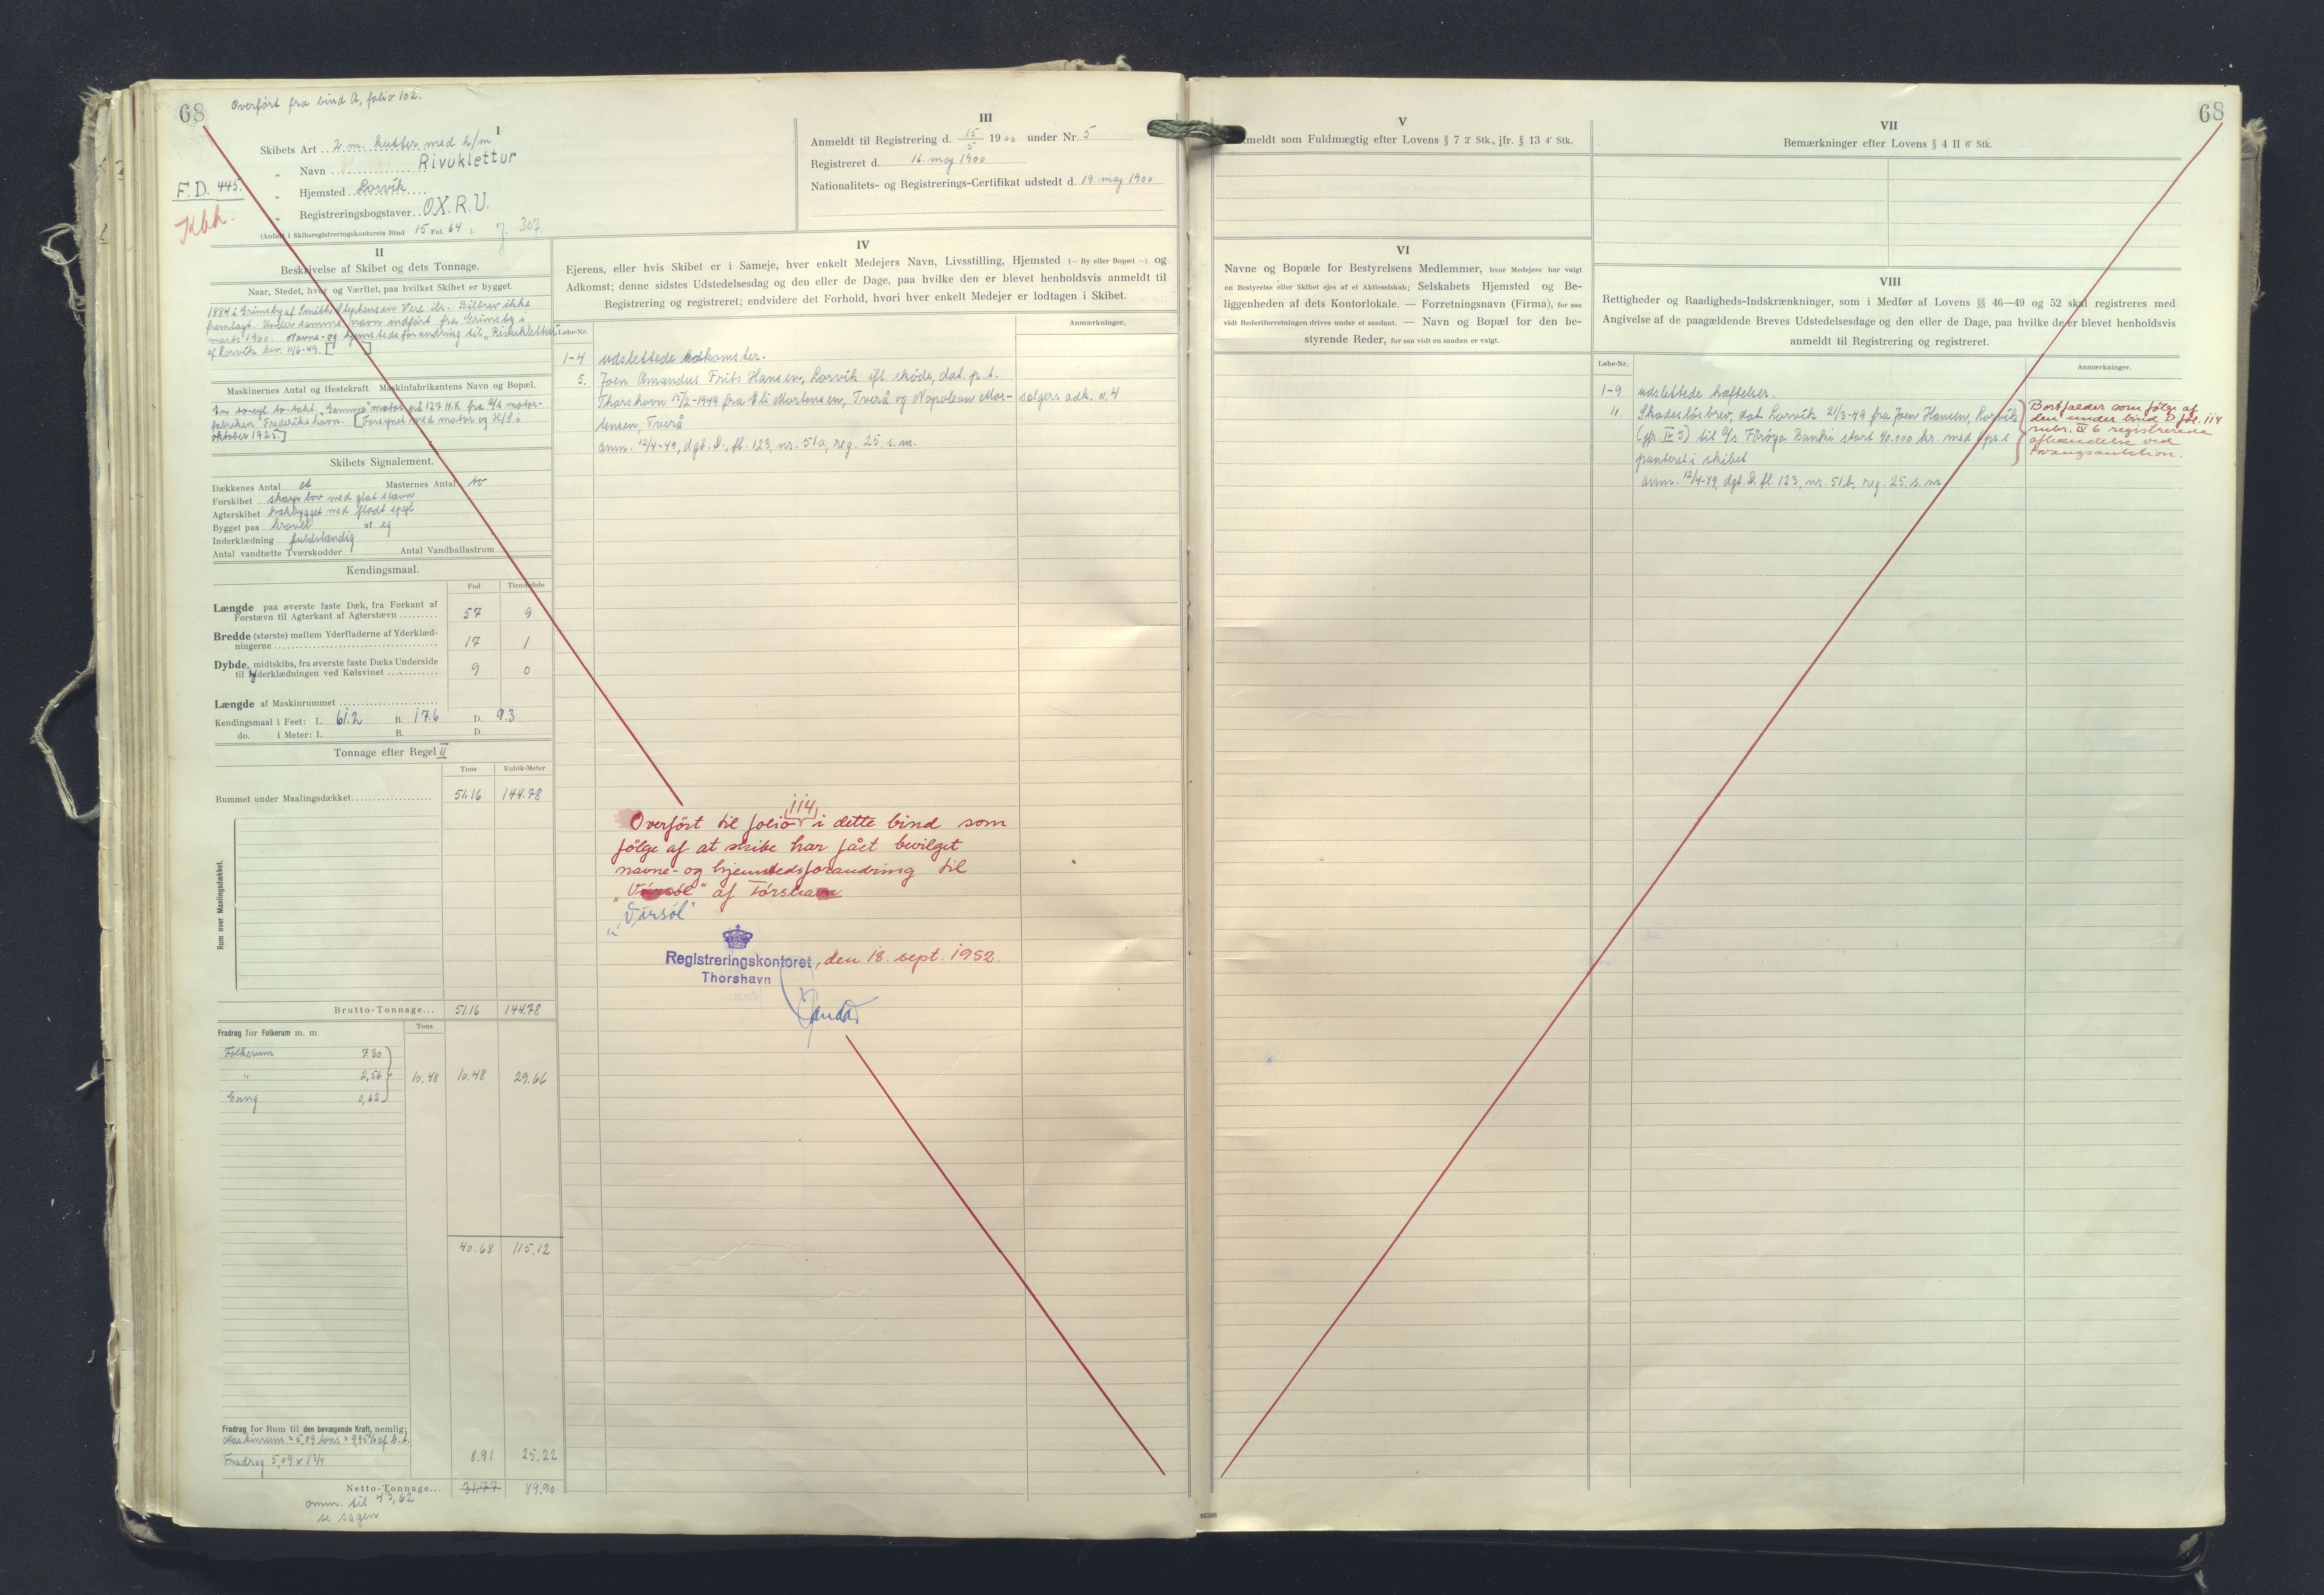 68
Overført fra bind A, folio 102.
I
Skibets Art 2 m. kutter med h/m
„ Navn Rivuklettur
F.D. 445.
„ Hjemsted Lorvík
Kbh.
„ Registreringsbogstaver OX.R.U.
(Anført i Skibsregistreringskontorets Bind 15 Fol. 64 ). J. 307.
III
Anmeldt til Registrering d. 15/5 1900 under Nr. 5
Registreret d. 16. maj 1900
Nationalitets- og Registrerings-Certifikat udstedt d. 19. maj 1900
II
Beskrivelse af Skibet og dets Tonnage.
Naar, Stedet, hvor og Værftet, paa hvilket Skibet er bygget.
1884 i Grimsby af Smith Stephensen Vere ilr. Bilbrev ikke
fremlagt. Under samme navn indført fra Grimsby i
marts 1900. Navne- og hjemstedsforandring til „Rivuklettur"
af Lorvík bev. 11/6-49. [ ]
Maskinernes Antal og Hestekraft. Maskinfabrikantens Navn og Bopæl.
En to-cyl. to-takt „Gamma" motor på 127 H.K. fra A/s motor-
fabriken Frederikshavn. [Forsynet med motor og H/S i
oktober 1925.]
Skibets Signalement.
Dækkenes Antal et Masternes Antal to
Forskibet skarp bov med glat stævn
Agterskibet hækbygget med fladt spejl
Bygget paa kravel af eg
Inderklædning fuldstændig
Antal vandtætte Tværskodder Antal Vandballastrum
Kendingsmaal.
Fod Tiendedele
Længde paa øverste faste Dæk, fra Forkant af
Forstævn til Agterkant af Agterstævn 57 9
Bredde (største) mellem Yderfladerne af Yderklæd-
ningerne 17 1
Dybde, midtskibs, fra øverste faste Dæks Underside
til Yderklædningen ved Kølsvinet 9 0
Længde af Maskinrummet
Kendingsmaal i Feet: L. 61.2 B. 17.6 D. 9.3
do. i Meter: L. B. D.
Tonnage efter Regel II
Tons Kubik-Meter
Rummet under Maalingsdækket 51.16 144.78
Rum over Maalingsdækket.
Brutto-Tonnage... 51.16 144.78
Fradrag for Folkerum m. m. Tons
Folkerum 7.30
„ 2,56 10,48 10.48 29.66
Gang 0,62
40.68 115,12
Fradrag for Rum til den bevægende Kraft, nemlig:
Maskinrum = 5,09 tons = 9,95% af b.t.
Fradrag 5,09 x 1 3/4 8.91 25.22
Netto-Tonnage... 31.77 89.90
omm. til 43,62
se sagen
IV
Ejerens, eller hvis Skibet er i Sameje, hver enkelt Medejers Navn, Livsstilling, Hjemsted (— By eller Bopæl —) og
Adkomst; denne sidstes Udstedelsesdag og den eller de Dage, paa hvilke den er blevet henholdsvis anmeldt til
Registrering og registreret; endvidere det Forhold, hvori hver enkelt Medejer er lodtagen i Skibet.
Løbe-Nr. Anmærkninger.
1-4 udslettede adkomster.
5. Joen Amandus Frits Hansen, Lorvík ifl. skøde, dat. p. t.
Thorshavn 15/2-1949 fra Eli Mortensen, Tverå og Napolean Mor- sælgers adk. n. 4
tensen, Tverå
anm. 12/4-49, dgb. D, fl. 123, nr. 51a, reg. 25. s. m.
Overført til folio 114 i dette bind som
følge af at skibe har fået bevilget
navne- og hjemstedsforandring til
„Vársól" af Tórshavn
„Vársól"
Registreringskontoret, den 18. sept. 1952.
Thorshavn
V
Anmeldt som Fuldmægtig efter Lovens § 7 2' Stk., jfr. § 13 4' Stk.
VI
Navne og Bopæle for Bestyrelsens Medlemmer, hvor Medejere har valgt
en Bestyrelse eller Skibet ejes af et Aktieselskab; Selskabets Hjemsted og Be-
liggenheden af dets Kontorlokale. — Forretningsnavn (Firma), for saa
vidt Rederiforretningen drives under et saadant. — Navn og Bopæl for den be-
styrende Reder, for saa vidt en saadan er valgt.
68
VII
Bemærkninger efter Lovens § 4 II 6' Stk.
VIII
Rettigheder og Raadigheds-Indskrænkninger, som i Medfør af Lovens §§ 46—49 og 52 skal registreres med
Angivelse af de paagældende Breves Udstedelsesdage og den eller de Dage, paa hvilke de er blevet henholdsvis
anmeldt til Registrering og registreret.
Løbe-Nr. Anmærkninger.
1-9 udslettede hæftelser.
11. Skadesløsbrev, dat. Lorvík 21/3-49 fra Joen Hansen, Lorvík
(jfr. IV 5) til A/s Føroya Banki stort 40.000 kr. med 1 pr.
panteret i skibet
anm. 12/4-49, dgb. D. fl. 123, nr. 51b, reg. 25. s. m.
Bortfalder som følge af
den under bind D fol. 114
rubr. IV 6 registrerede
afhændelse ved
tvangsauktion.
86298